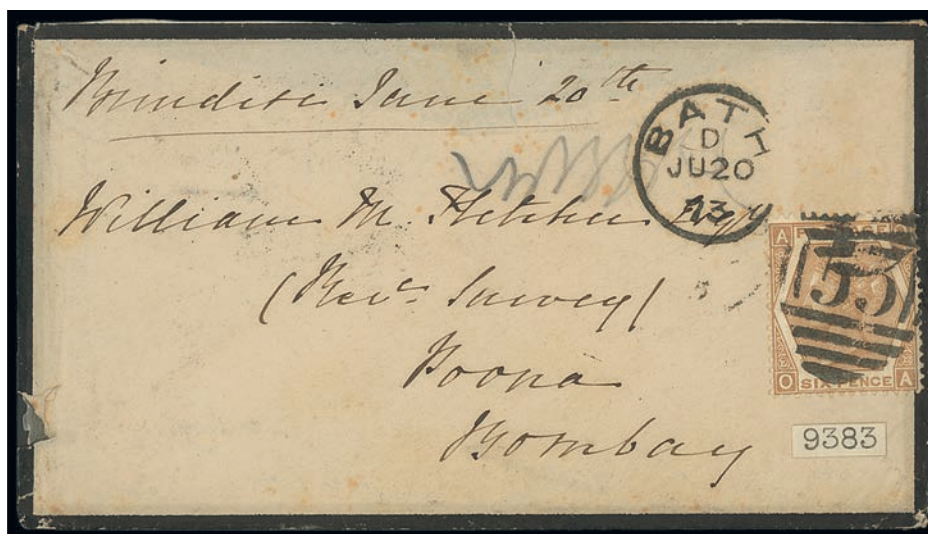 Brindisi June 20th
BATH
D
JU20
73
William M. Fletcher Esqre
(Revu Survey)
Poona
Bombay
A
53
O SIX PENCE A
9383